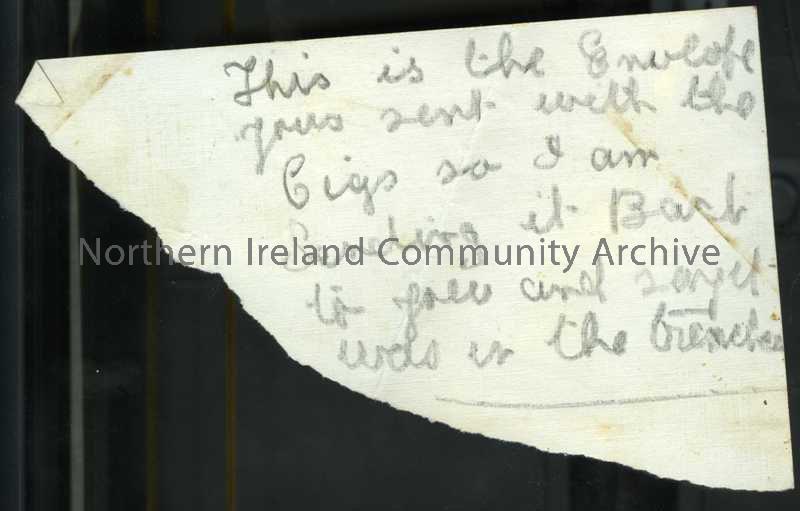 This is the Envelope
you sent with the
Cigs so I am
Sending it Back
to you and say it
was in the trenches
Northern Ireland Community Archive